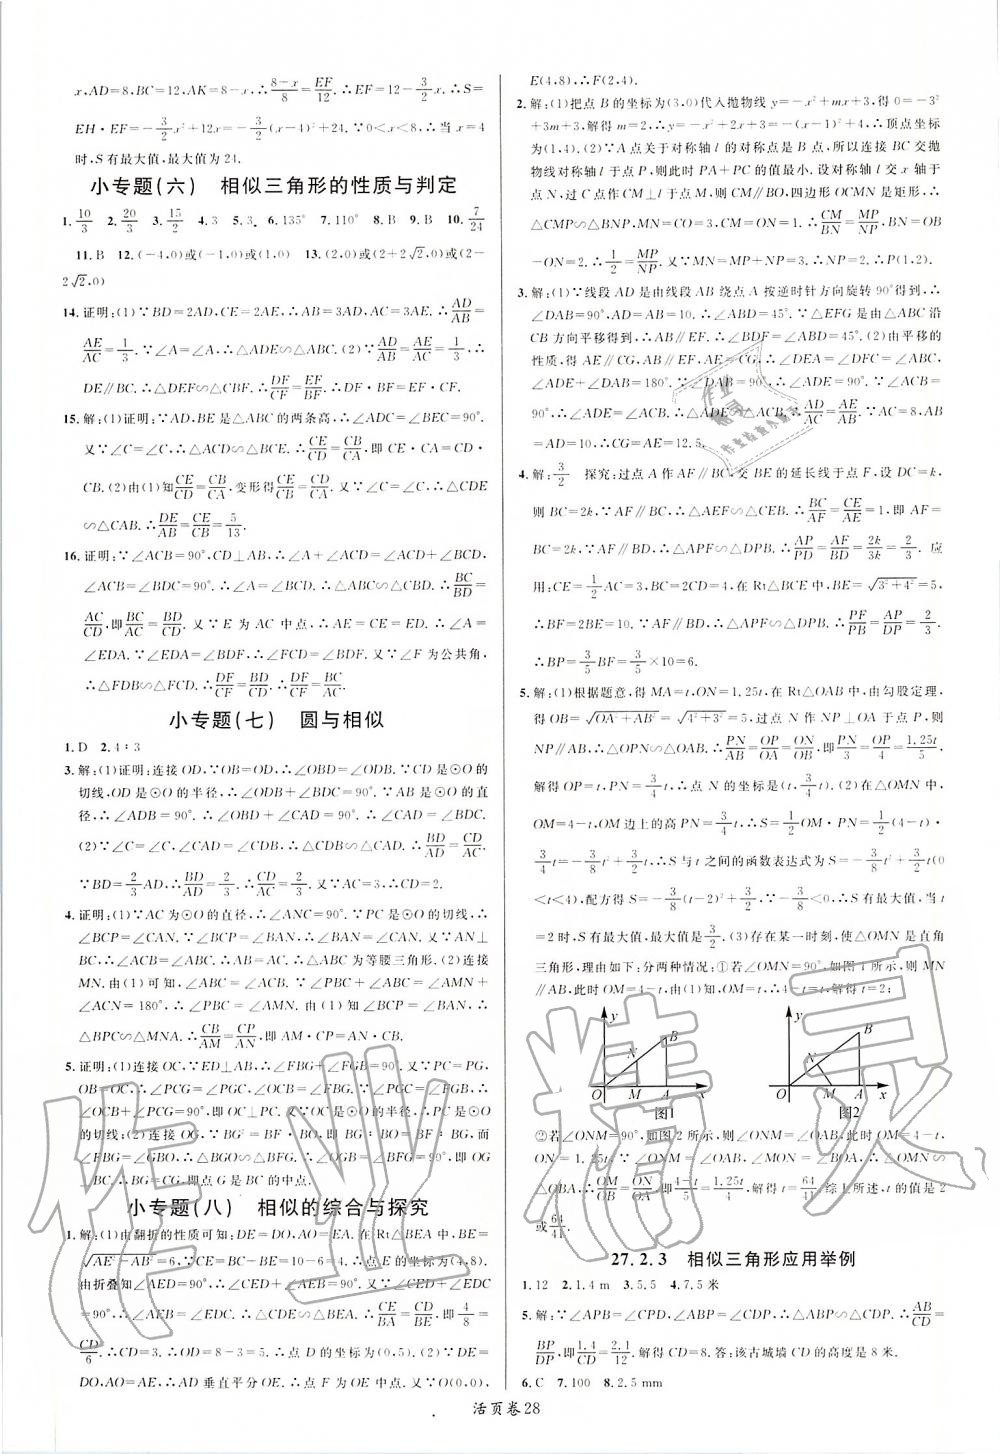 x,AD=8,BC=12,AK=8-x,∴(8-x)/8=EF/12.∴EF=12-3/2x.∴S=
EH·EF=-3/2x²+12x=-3/2(x-4)²+24.∵0<x<8,∴当x=4
时,S有最大值,最大值为24.
小专题(六) 相似三角形的性质与判定
1.10/3 2.20/3 3.15/2 4.3 5.3 6.135° 7.110° 8.B 9.B 10.7/24
11.B 12.(-4,0)或(-1,0)或(1,0) 13.(2,0)或(2+2√2,0)或(2-
2√2,0)
14.证明:(1)∵BD=2AD,CE=2AE,∴AB=3AD,AC=3AE.∴AD/AB=
AE/AC=1/3.又∵∠A=∠A,∴△ADE∽△ABC.(2)∵AD/AB=AE/AC=1/3,∴
DE∥BC.∴△DEF∽△CBF.∴DF/CF=EF/BF.∴DF·BF=EF·CF.
15.解:(1)证明:∵AD,BE是△ABC的两条高,∴∠ADC=∠BEC=90°.
又∵∠C=∠C,∴△ACD∽△BCE.∴CE/CD=CB/CA.即CE·CA=CD·
CB.(2)由(1)知CE/CD=CB/CA,变形得CE/CB=CD/CA.又∵∠C=∠C,∴△CDE
∽△CAB.∴DE/AB=CE/CB=5/13.
16.证明:∵∠ACB=90°,CD⊥AB,∴∠A+∠ACD=∠ACD+∠BCD,
∠ACB=∠BDC=90°.∴∠A=∠BCD.∴△ABC∽△CBD.∴BC/BD=
AC/CD,即BC/AC=BD/CD.又∵E为AC中点,∴AE=CE=ED.∴∠A=
∠EDA.∵∠EDA=∠BDF,∴∠FCD=∠BDF.又∵∠F为公共角,
∴△FDB∽△FCD.∴DF/CF=BD/CD.∴DF/CF=BC/AC.
小专题(七) 圆与相似
1.D 2.4∶3
3.解:(1)证明:连接OD,∵OB=OD,∴∠OBD=∠ODB.∵CD是⊙O的
切线,OD是⊙O的半径,∴∠ODB+∠BDC=90°.∵AB是⊙O的直
径,∴∠ADB=90°.∴∠OBD+∠CAD=90°.∴∠CAD=∠BDC.
(2)∵∠C=∠C,∠CAD=∠CDB,∴△CDB∽△CAD.∴BD/AD=CD/AC.
∵BD=2/3AD,∴BD/AD=2/3.∴CD/AC=2/3.又∵AC=3,∴CD=2.
4.证明:(1)∵AC为⊙O的直径,∴∠ANC=90°.∵PC是⊙O的切线,
∴∠BCP=∠CAN.∵∠BCP=∠BAN,∴∠BAN=∠CAN.又∵AN⊥
BC,∴∠ABC=∠ACB.∴AB=AC.∴△ABC为等腰三角形.(2)连接
MN.由(1)可知,∠ABC=∠ACB.∵∠PBC+∠ABC=∠AMN+
∠ACN=180°,∴∠PBC=∠AMN.由(1)知∠BCP=∠BAN,
∴△BPC∽△MNA.∴CB/AM=CP/AN,即AM·CP=AN·CB.
5.证明:(1)连接OC,∵ED⊥AB,∴∠FBG+∠BFG=90°.又∵PC=PG,
OB=OC,∴∠PCG=∠PGC,∠FBG=∠OCB.∵∠PGC=∠BFG,∴
∠OCB+∠PCG=90°,即OC⊥PC.又∵OC是⊙O的半径,∴PC是⊙O
的切线;(2)连接OG,∵BG²=BF·BO,即BG/BO=BF/BG,而
∠FBG=∠GBO,∴△BGO∽△BFG.∴∠OGB=∠BFG=90°.即OG⊥
BC,∴BG=CG,即点G是BC的中点.
小专题(八) 相似的综合与探究
1.解:(1)由翻折的性质可知:DE=DO,AO=EA.在Rt△BEA中,AB
=√(AE²-BE²)=6,∵CE=BC-BE=10-6=4,∴点E的坐标为(4,8).
由折叠知∠AED=∠AOD=90°,∴∠CED+∠AEB=∠CED+∠EDC
=90°.∴∠AEB=∠EDC.∴△CDE∽△BEA.∴CE/BA=CD/BE,即4/8=
CD/6.∴CD=3.∴OD=8-3=5.∴点D的坐标为(0,5).(2)∵DE=
DO,AO=AE,∴AD垂直平分OE.∴点F为OE中点.又∵O(0,0),
E(4,8),∴F(2,4).
2.解:(1)把点B的坐标为(3,0)代入抛物线y=-x²+mx+3,得0=-3²
+3m+3,解得m=2,∴y=-x²+2x+3=-(x-1)²+4,∴顶点坐标
为(1,4).(2)∵A点关于对称轴l的对称点是B点,所以连接BC交抛
物线对称轴l于点P,则此时PA+PC的值最小.设对称轴l交x轴于
点N,过点C作CM⊥l于点M,则CM∥BO,四边形OCMN是矩形,∴
△CMP∽△BNP,MN=CO=3,CM=ON=1.∴CM/BN=MP/NP,BN=OB
-ON=2.∴1/2=MP/NP.又∵MN=MP+NP=3,∴NP=2.∴P(1,2).
3.解:(1)∵线段AD是由线段AB绕点A按逆时针方向旋转90°得到,∴
∠DAB=90°,AD=AB=10.∴∠ABD=45°.∵△EFG是由△ABC沿
CB方向平移得到,∴AB∥EF.∴∠BDF=∠ABD=45°.(2)由平移的
性质,得AE∥CG,AB∥EF,AE=CG.∴∠DEA=∠DFC=∠ABC,
∠ADE+∠DAB=180°.∵∠DAB=90°,∴∠ADE=90°.∵∠ACB=
90°,∴∠ADE=∠ACB.∴△ADE∽△ACB.∴AD/AC=AE/AB.∵AC=8,AB
=AD=10,∴CG=AE=12.5.
4.解:3/2 探究:过点A作AF∥BC,交BE的延长线于点F,设DC=k,
则BC=2k,∵AF∥BC,∴△AEF∽△CEB.∴BC/AF=CE/AE=1,即AF=
BC=2k.∵AF∥BC,∴△APF∽△DPB.∴AP/PD=AF/BD=2k/3k=2/3. 应
用:CE=1/2AC=3,BC=2CD=4,在Rt△BCE中,BE=√(3²+4²)=5,
∴BF=2BE=10.∵AF∥BC,∴△APF∽△DPB.∴PF/PB=AP/DP=2/3.
∴BP=3/5BF=3/5×10=6.
5.解:(1)根据题意,得MA=t,ON=1.25t,在Rt△OAB中,由勾股定理,
得OB=√(OA²+AB²)=√(4²+3²)=5.过点N作NP⊥OA于点P,则
NP∥AB,∴△OPN∽△OAB.∴PN/AB=OP/OA=ON/OB,即PN/3=OP/4=1.25t/5,
解得OP=t,PN=3/4t,∴点N的坐标是(t,3/4t).(2)在△OMN中,
OM=4-t,OM边上的高PN=3/4t,∴S=1/2OM·PN=1/2(4-t)·
3/4t=-3/8t²+3/2t,∴S与t之间的函数表达式为S=-3/8t²+3/2t(0
<t<4),配方得S=-3/8(t-2)²+3/2,∵-3/8<0,∴S有最大值,当t
=2时,S有最大值,最大值是3/2.(3)存在某一时刻,使△OMN是直角
三角形,理由如下:分两种情况:①若∠OMN=90°,如图1所示,则MN
∥AB,此时OM=4-t,ON=1.25t,∵MN∥AB,∴△OMN∽△OAB,解得t=2;
y B N O M A x 图1
y B N O M A x 图2
②若∠ONM=90°,如图2所示,则∠ONM=∠OAB,此时OM=4-t,
ON=1.25t,∴OM/OB=ON/OA,即(4-t)/5=1.25t/4,解得t=64/41.综上所述,t的值是2
或64/41.
27.2.3 相似三角形应用举例
1.12 2.1.4m 3.5.5 4.7.5米
5.解:∵∠APB=∠CPD,∠ABP=∠CDP,∴△ABP∽△CDP.∴AB/CD=
BP/DP,即1.4/CD=2.1/12.解得CD=8.答:该古城墙CD的高度是8米.
6.C 7.100 8.2.5mm
活页卷28
作业精灵